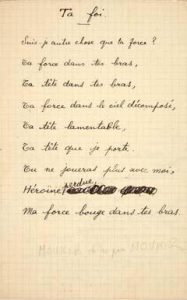 Ta foi.
Suis-je autre chose que ta force ?
Ta force dans tes bras,
Ta tête dans tes bras,
Ta force dans le ciel décomposé,
Ta tête lamentable,
Ta tête que je porte.
Tu ne joueras plus avec moi,
Héroïne perdue,
Ma force bouge dans tes bras.